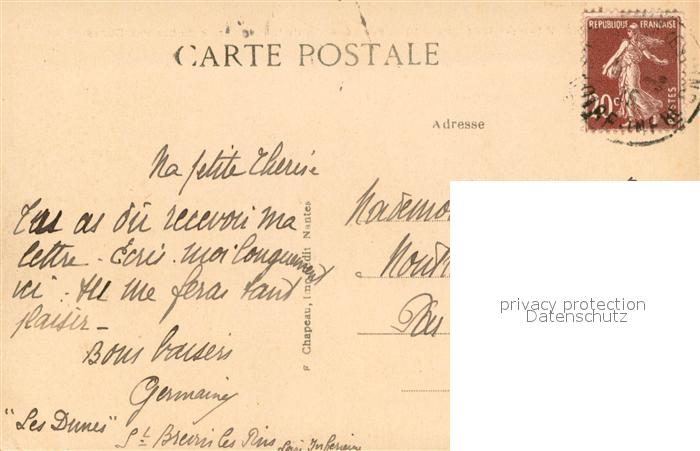 CARTE POSTALE
REPUBLIQUE FRANÇAISE
20c POSTES
LOIRE INFRE
Adresse
Ma petite Thérèse
Tu as dû recevoir ma
lettre - Écris moi longuement
ici - tu me feras tant
plaisir -
Bons baisers
Germaine
"Les Dunes"
St Brevin les Pins Loire Inférieure
F Chapeau, Imp Édit Nantes
privacy protection
Datenschutz